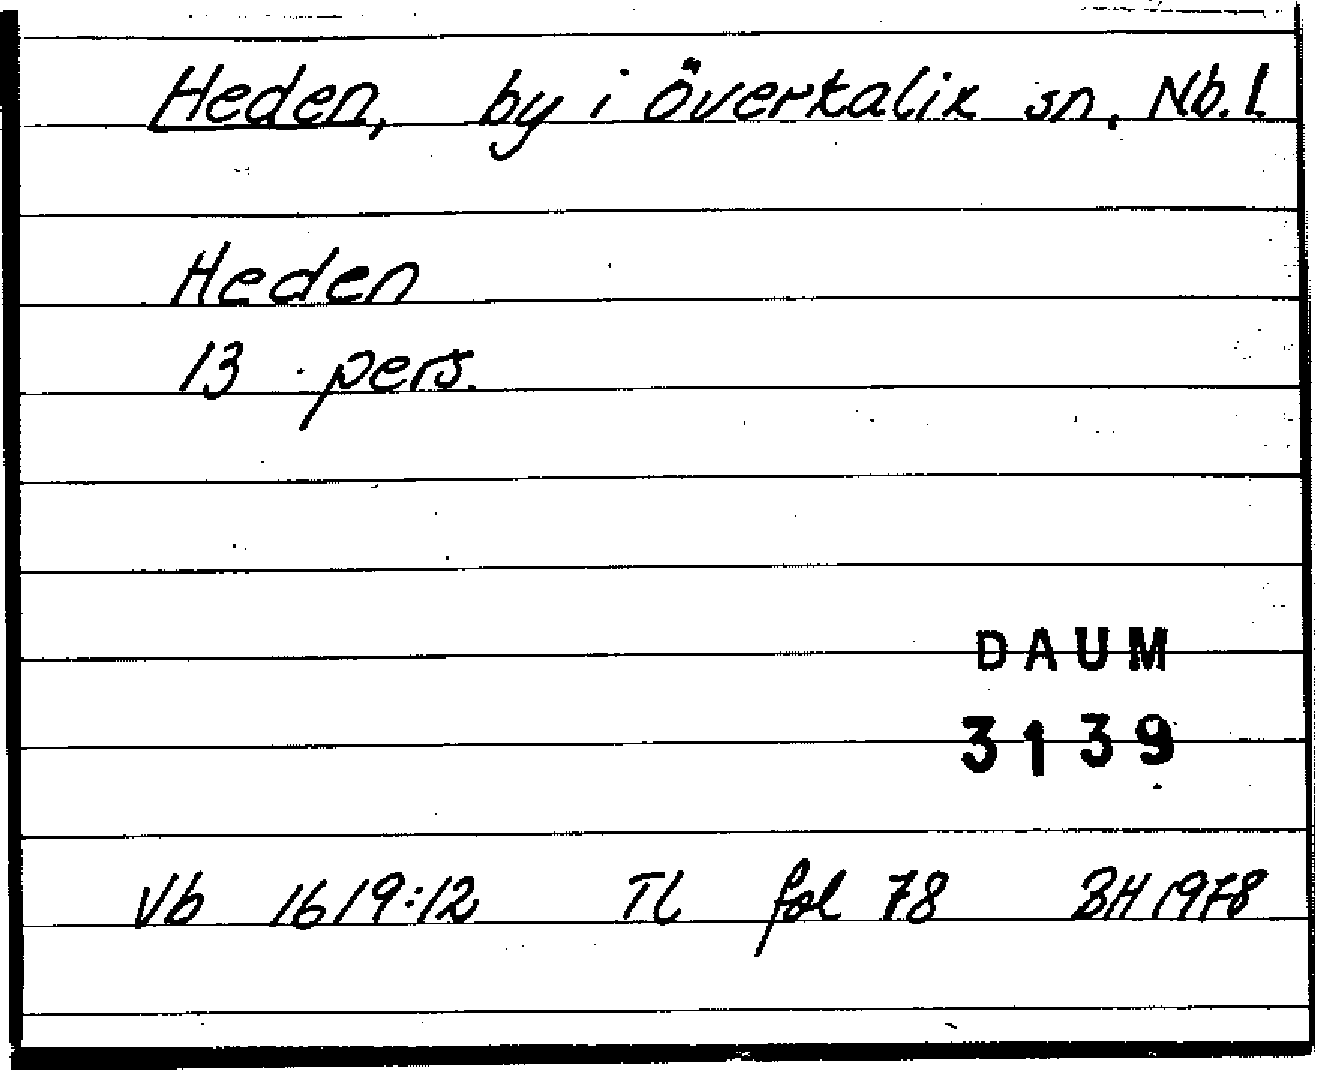 Heden, by i Överkalix sn, Nb.l
Heden
13 pers.
DAUM
3139
Vb 1619:12 Tl fol 78 BH 1978